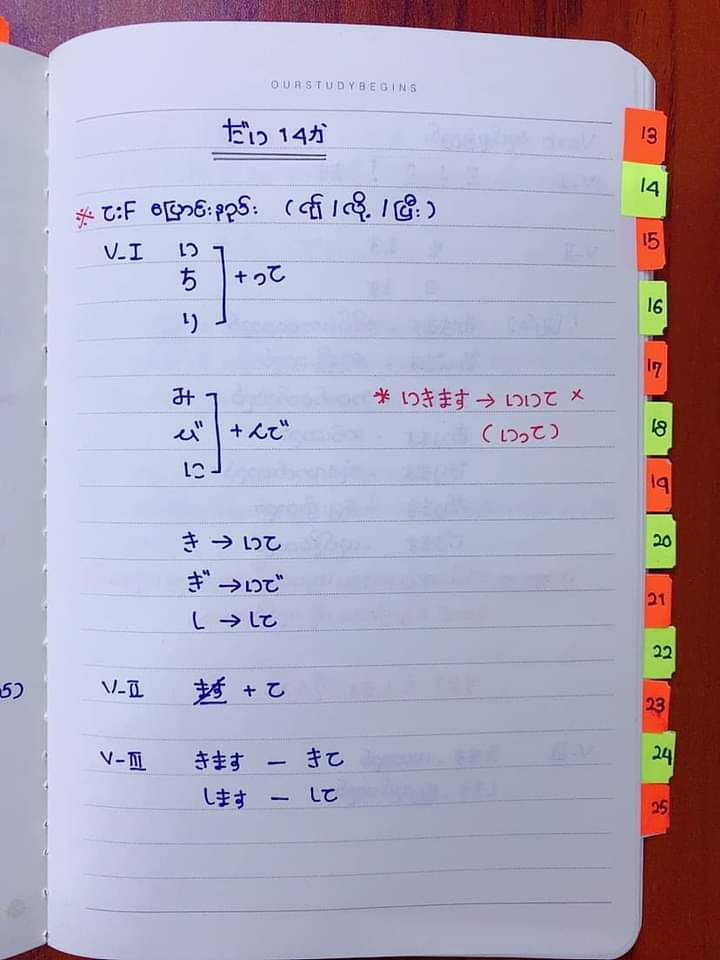 OURSTUDYBEGINS
だい 14か
※ て:F ပြောင်းနည်း (၍ / လို့ / ပြီး)
V-I い
ち
り
+ って
み
び
に
+ んで
* いきます → いいて ×
(いって)
き → いて
ぎ → いで
し → して
V-II ます + て
V-III きます — きて
します — して
13
14
15
16
17
18
19
20
21
22
23
24
25